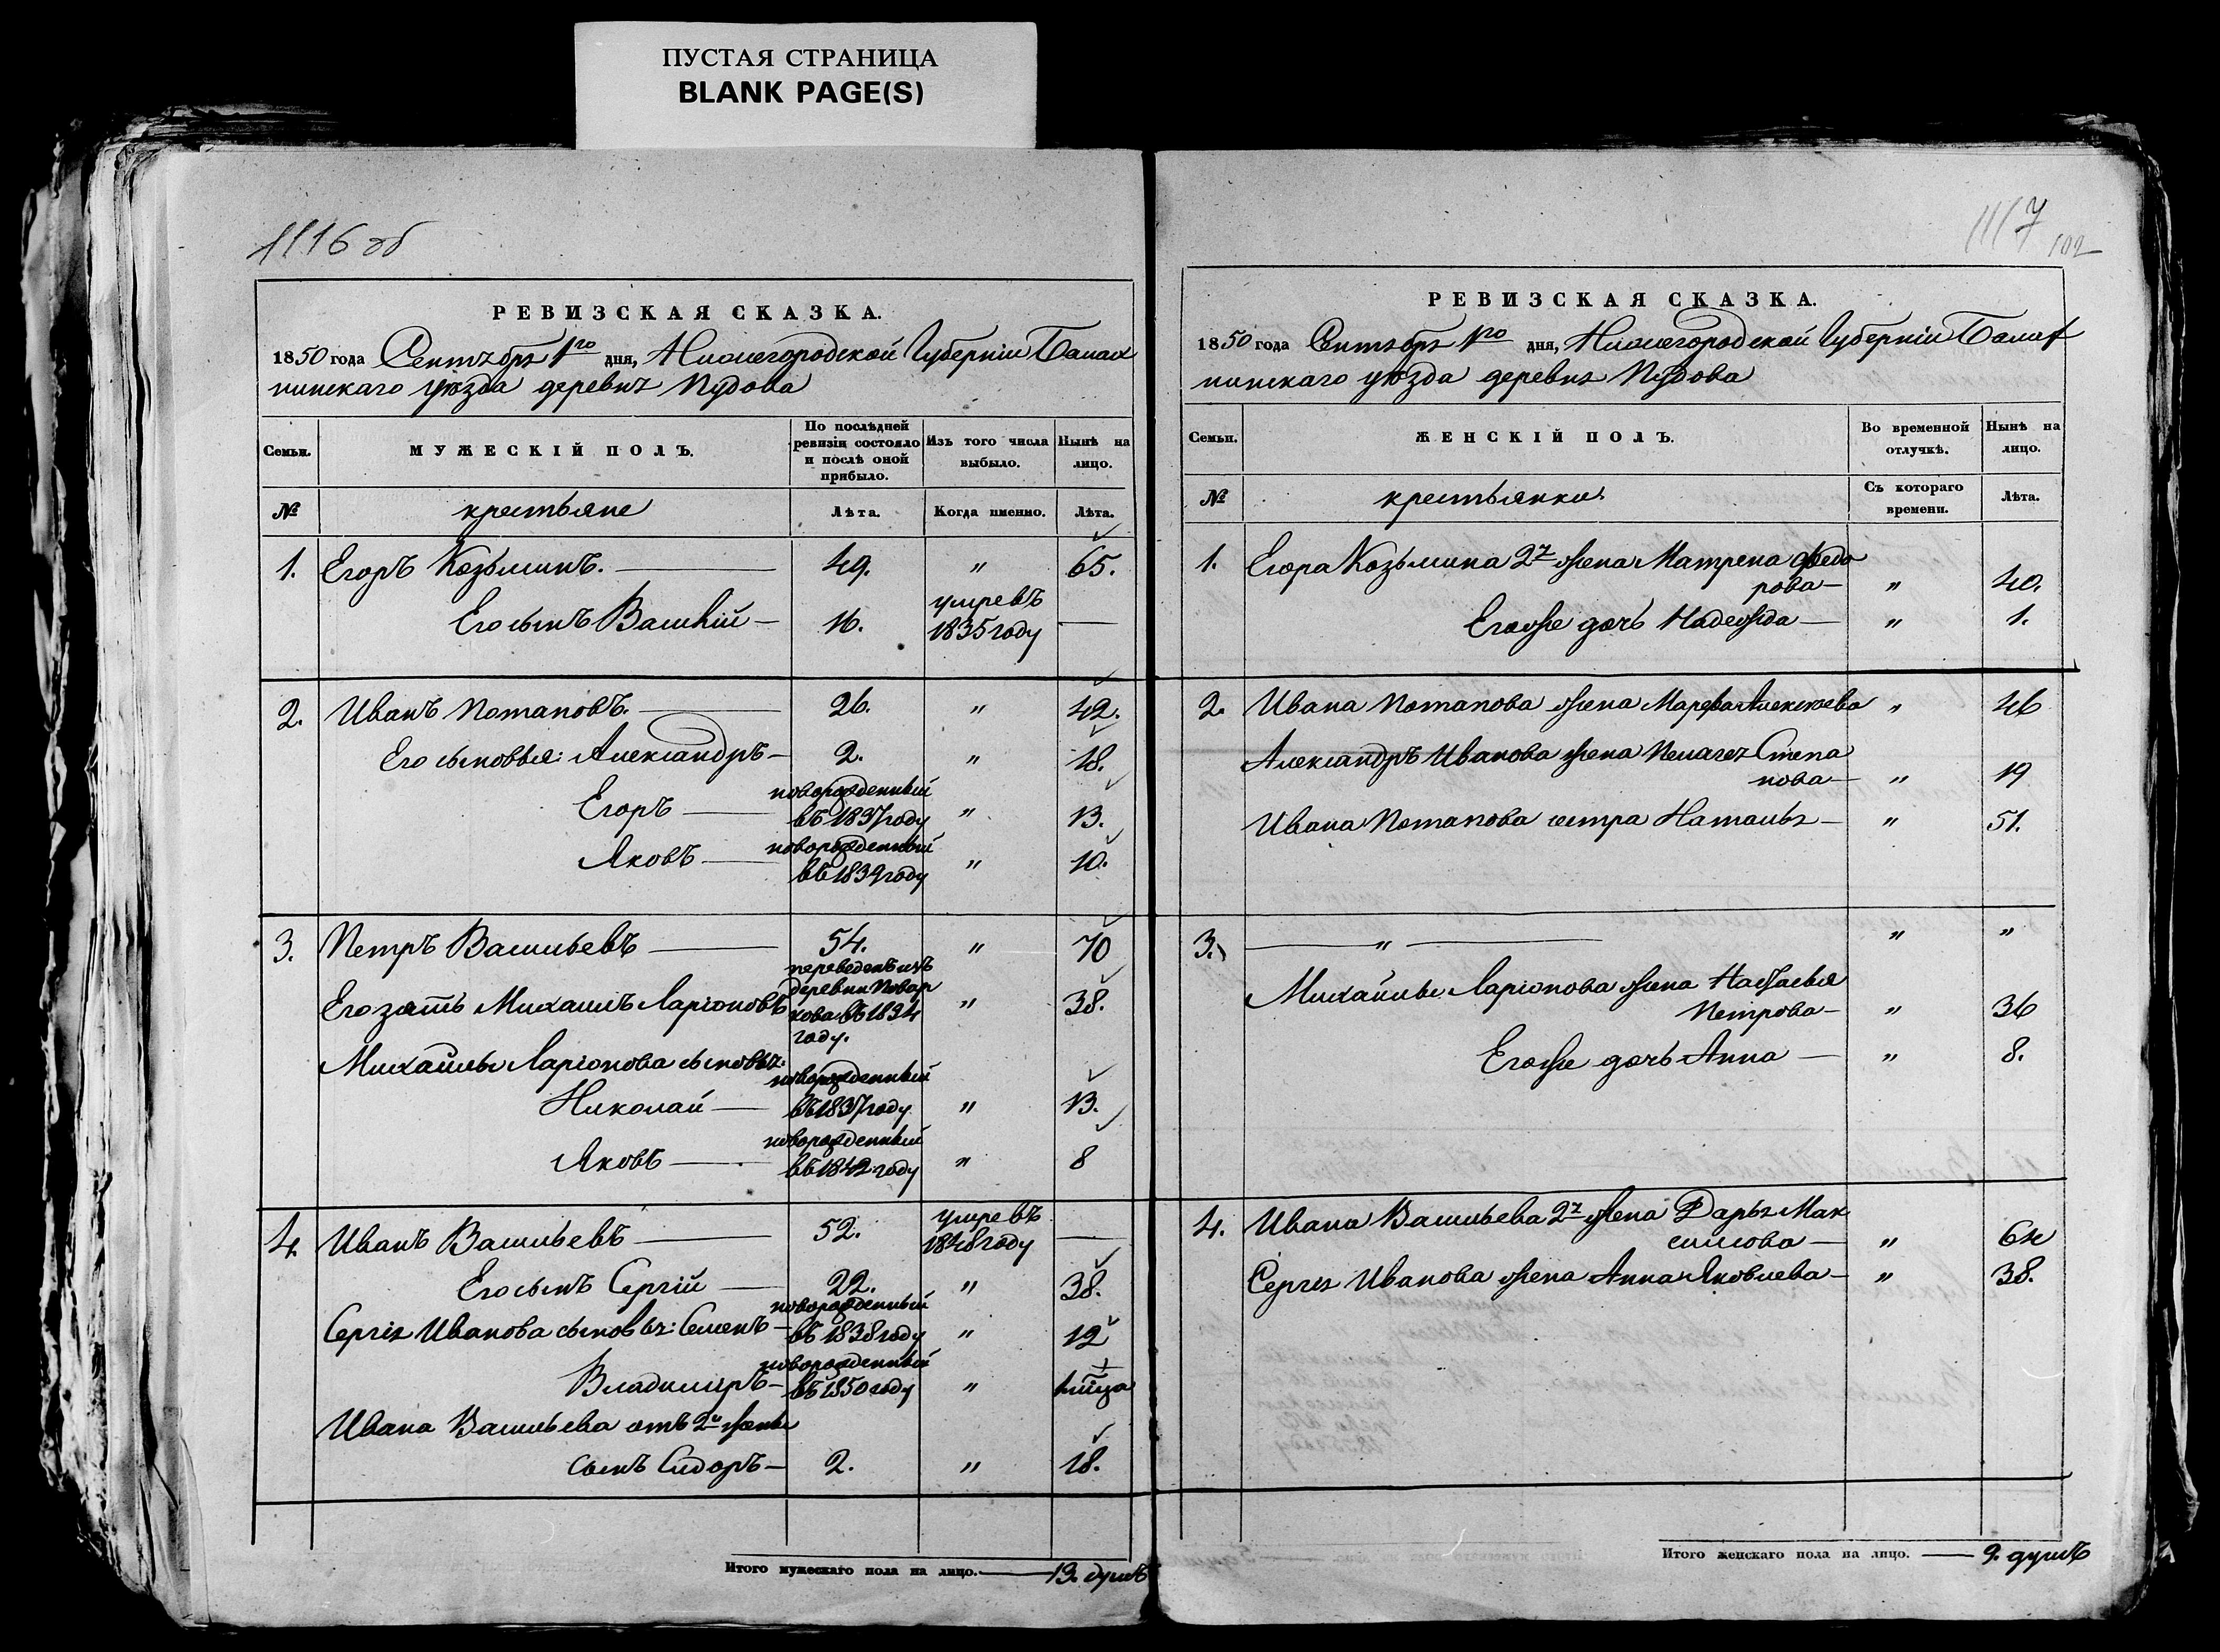 ПУСТАЯ СТРАНИЦА
BLANK PAGE(S)
1116 об
РЕВИЗСКАЯ СКАЗКА.
1850 года Сентября 1го дня, Нижегородской Губерніи Балах
нинскаго уѣзда деревни Пудова
Семьи. МУЖЕСКІЙ ПОЛЪ. По послѣдней ревизіи состояло и послѣ оной прибыло. Изъ того числа выбыло. Нынѣ на лицо.
№ крестьяне Лѣта. Когда именно. Лѣта.
1. Егоръ Козьминъ. 49. " 65.
Его сынъ Василій 16. умревъ 1835 году
2. Иванъ Потаповъ. 26. " 42.
Его сыновья: Александръ 2. " 18.
Егоръ новорожденный въ 1837 году " 13.
Яковъ новорожденный въ 1839 году " 10.
3. Петръ Васильевъ 54. " 70
Его зять Михаилъ Ларіоновъ переведенъ изъ деревни Повар кова въ 1834 году. " 38.
Михайлы Ларіонова сыновья:
Николай новорожденный въ 1837 году " 13.
Яковъ новорожденный въ 1842 году " 8
4. Иванъ Васильевъ 52. умревъ 1848 году
Его сынъ Сергій 22. " 38.
Сергія Иванова сыновья: Семенъ новорожденный въ 1838 году " 12
Владиміръ новорожденный въ 1850 году "
Ивана Васильева отъ 2й жены
сынъ Сидоръ 2. " 18.
Итого мужескаго пола на лицо. 13. душъ
1117
102
РЕВИЗСКАЯ СКАЗКА.
1850 года Сентября 1го дня, Нижегородской Губерніи Балах
нинскаго уѣзда деревня Пудова
Семьи. ЖЕНСКІЙ ПОЛЪ. Во временной отлучкѣ. Нынѣ на лицо.
№ крестьянки. Съ котораго времени. Лѣта.
1. Егора Козьмина 2я жена Матрена Федо
рова " 40.
Егоже дочь Надежда " 1.
2. Ивана Потапова жена Марфа Алексѣева " 46
Александръ Иванова жена Пелагея Степа
нова " 19
Ивана Потапова сестра Наталья " 51.
3. " " "
Михайлы Ларіонова жена Настасья
Петрова " 36
Егоже дочь Анна " 8.
4. Ивана Васильева 2я жена Дарья Мак
симова " 64
Сергея Иванова жена Анна Яковлева " 38.
Итого женскаго пола на лицо. 9. душъ